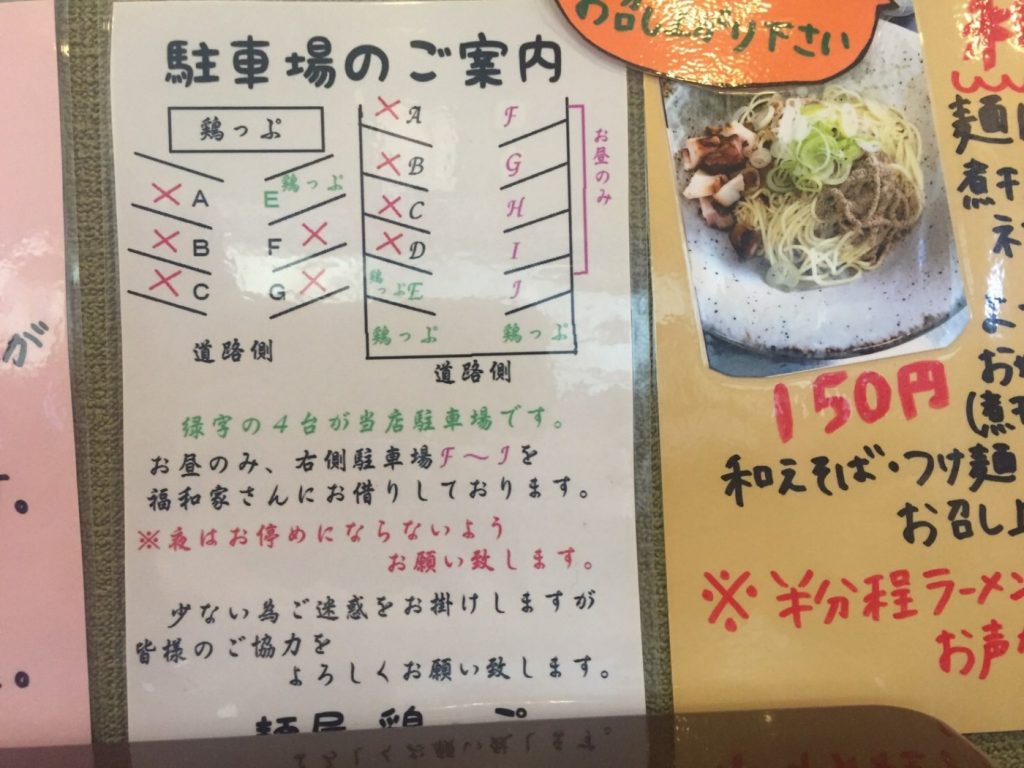 駐車場のご案内
鶏っぷ
A
B
C
E 鶏っぷ
F
G
道路側
A
B
C
D
鶏っぷ E
鶏っぷ
F
G
H
I
J
鶏っぷ
お昼のみ
道路側
緑字の4台が当店駐車場です。
お昼のみ、右側駐車場F〜Iを
福和家さんにお借りしております。
※夜はお停めにならないよう
お願い致します。
少ない為ご迷惑をお掛けしますが
皆様のご協力を
よろしくお願い致します。
麺屋 鶏っぷ
お召し上がり下さい
150円
麺
煮干
お
(煮干
和えそば・つけ麺
お召し上
※半分程ラーメン
お声
が
す。